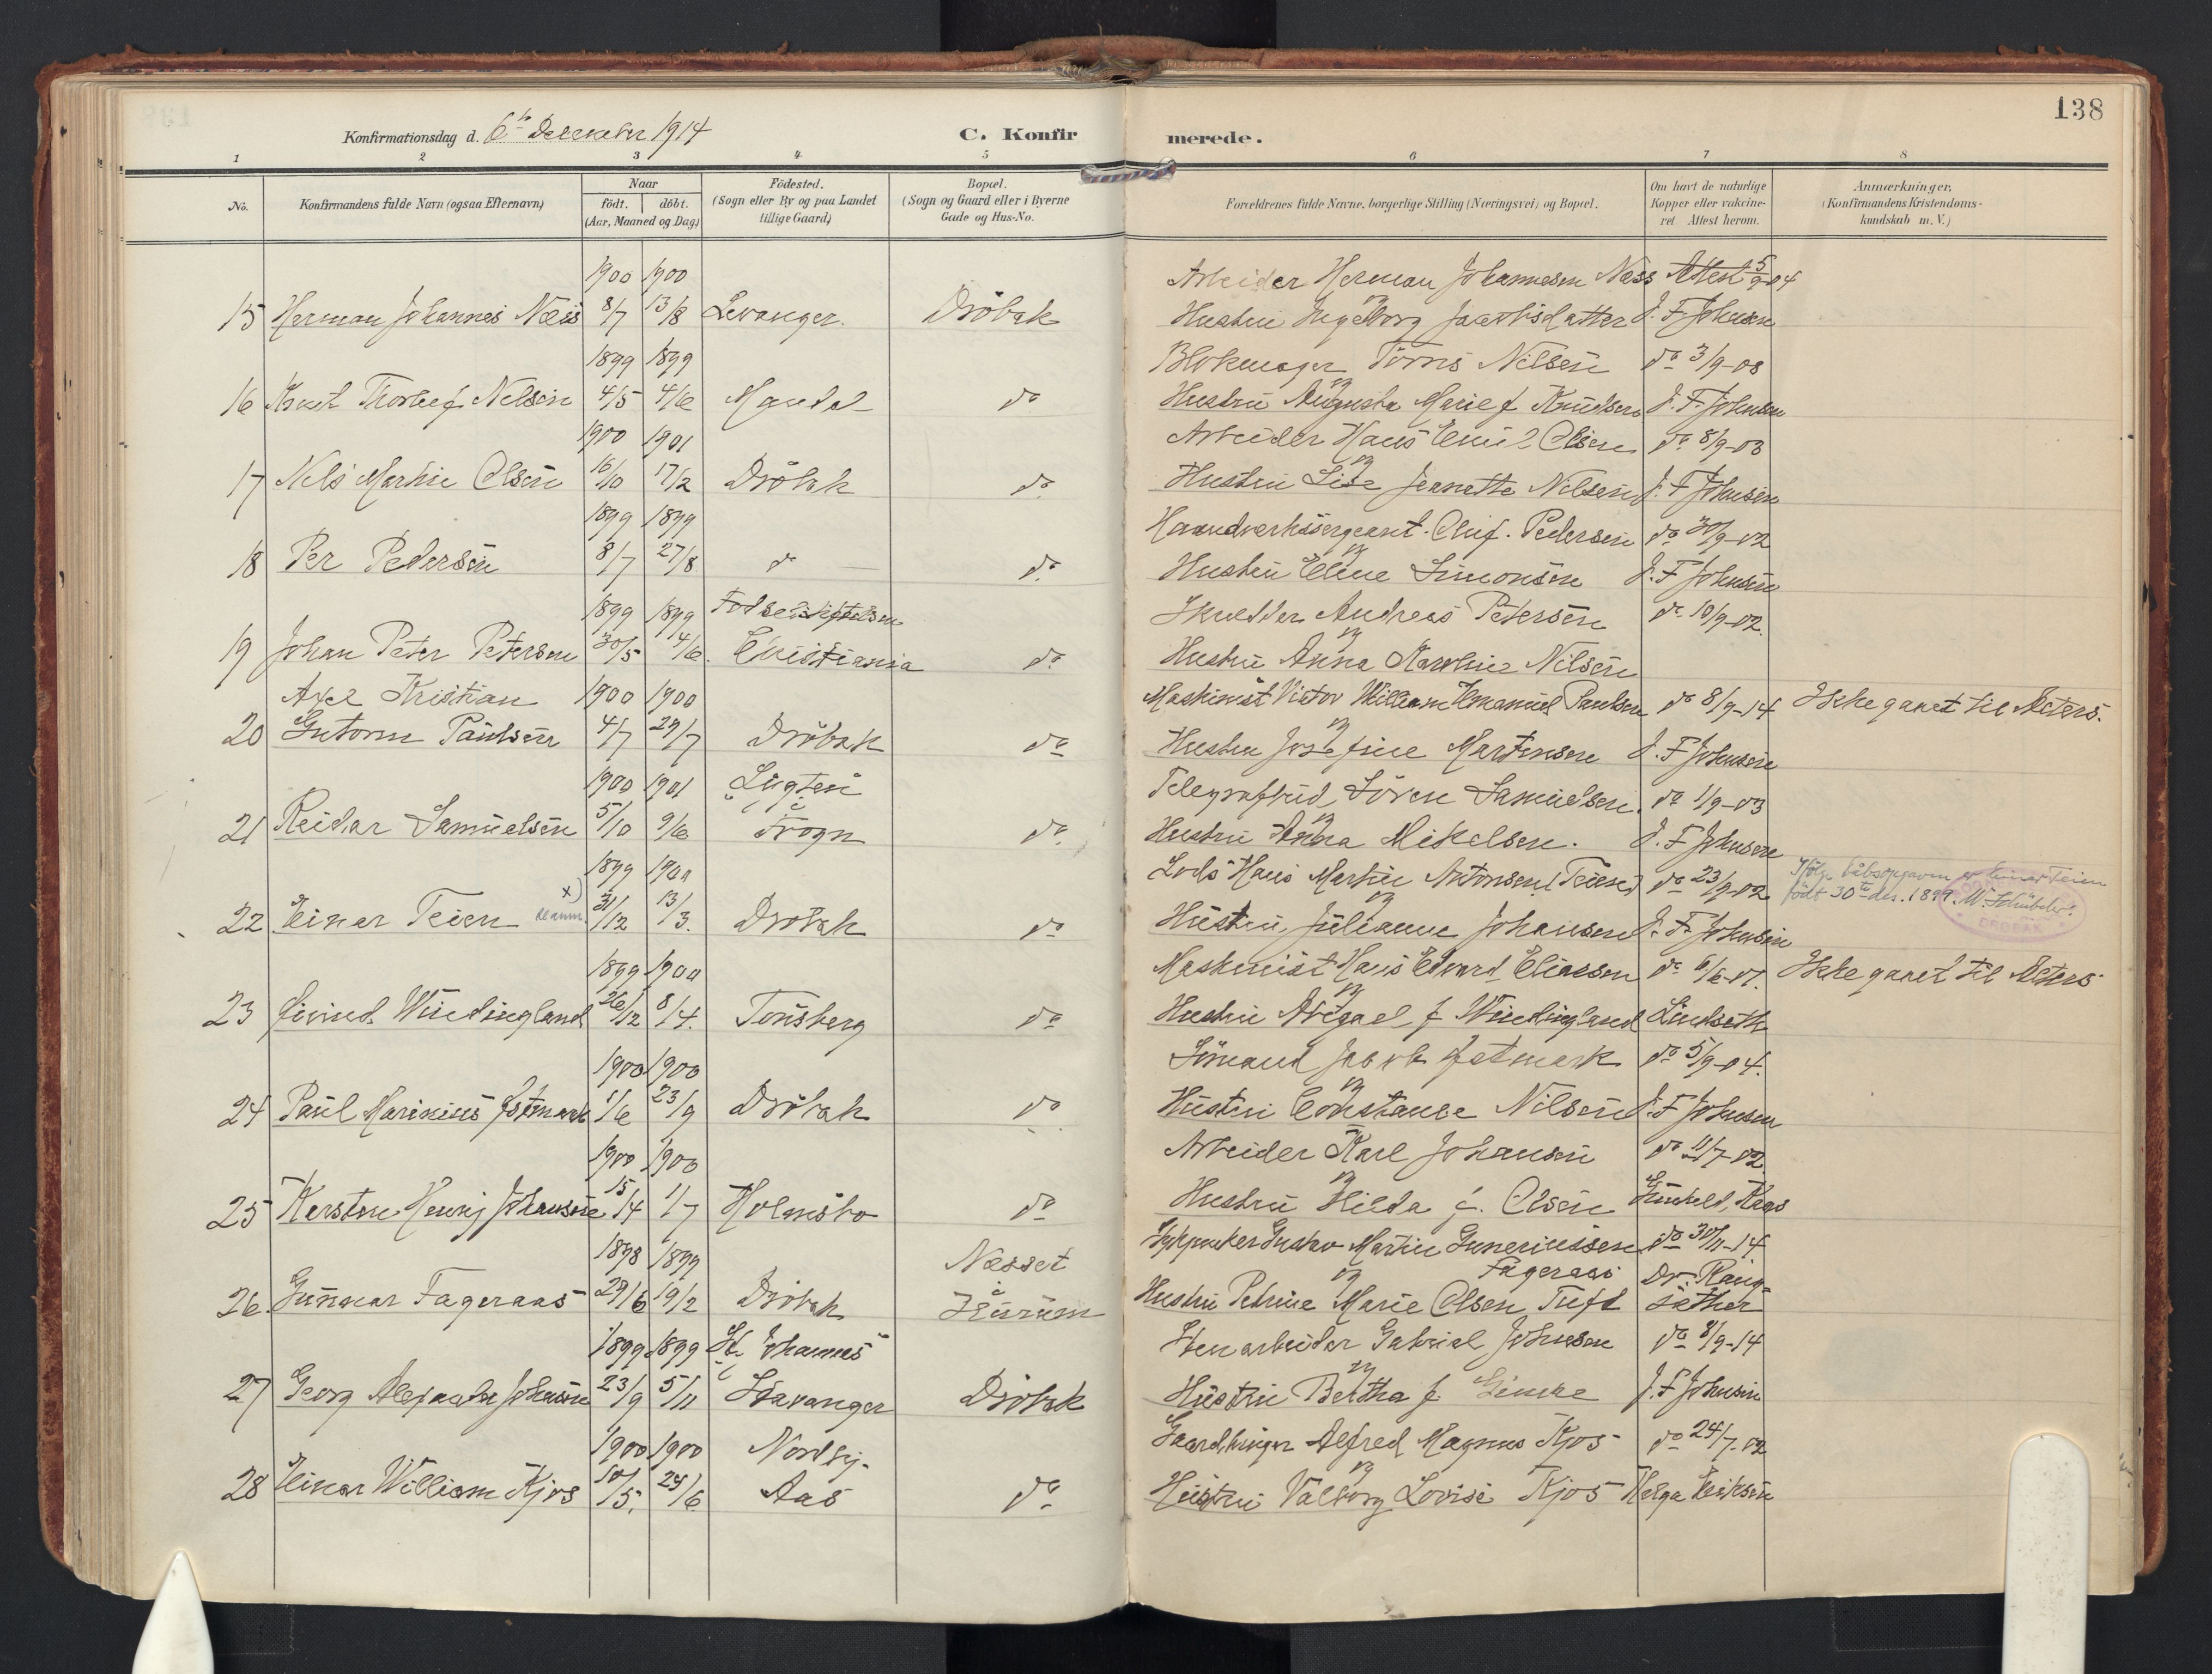 138
Konfirmationsdag d. 6te December 1914
C. Konfirmerede.
1 2 3 4 5 6 7 8
No.
Konfirmandens fulde Navn (ogsaa Efternavn)
Naar
födt. döbt.
(Aar, Maaned og Dag)
Födested.
(Sogn eller By og paa Landet
tillige Gaard)
Bopæl.
(Sogn og Gaard eller i Byerne
Gade og Hus-No.
Forældrenes fulde Navne, borgerlige Stilling (Næringsvei) og Bopæl.
Om havt de naturlige
Kopper eller vakcine-
ret Attest herom.
Anmærkninger.
(Konfirmandens Kristendoms-
kundskab m. V.)
1900 1900 Arbeider Herman Johannesen Næss Attest 5/9 04
15 Herman Johannes Næss 8/7 13/8 Levanger. Dröbak Hustru Ingeborg Jacobsdatter J. F. Johnsen
1899 1899 Blokmager Törris Nilsen do 3/9-08
16 Knut Thorleif Nilsen 4/5 4/6 Mandal do Hustru Augusta Marie f Knudsen J. F. Johnsen
1900 1901 Arbeider Hans Emil Olsen do 8/9-03
17 Nils Martin Olsen 16/10 17/2 Dröbak do Hustru Lise Jeanette Nilsen J. F Johnsen
1899 1899 Haandverkssergeant. Oluf. Pedersen do 30/9-02
18 Per Pedersen 8/7 27/8 do do Hustru Eline Simonsen J. F Johnsen
1899 1899 Fødselsstiftelsen Skredder Andreas Petersen do 10/9-02.
19 Johan Peter Petersen 30/5 4/6. Christiania do Hustru Anna Karoline Nilsen
Axel Kristian 1900 1900 Maskinist Victor William Emanuel Paulsen do 8/9-14 Ikke gaaet til Alters.
20 Gutorm Paulsen 4/7 29/7 Dröbak do Hustru Josefine Martinsen J. F Johnsen
1900 1901 Digteri Telegrafbud Sören Samuelsen. do 1/9-03
21 Reidar Samuelsen 5/10 9/6 i Frogn do Hustru Anna Mikelsen. J. F Johnsen
1899 1900 Lods Hans Martin Antonsen (Teien) do 23/9-02 Ifølge dåbsopgaven er Einar Teien
22 Einar Teien x) se anm. 31/12 13/3. Dröbak do Hustru Julianne Johansen J. F. Johnsen født 30te des. 1899.
1899 1900 Maskinist Hans Edvard Eliassen do 6/6-07. Ikke gaaet til Alters
23 Eivind Windingland 26/12 8/4. Tönsberg do Hustru Abigael f Windingland Lindseth
1900 1900 Sömand Jacob Østmark do 5/9-04.
24 Paul Marinius Østmark 1/6 23/9 Dröbak do Hustru Constance Nilsen J. F Johnsen
1900 1900 Arbeider Karl Johansen do 11/7-02.
25 Kersten Henrij Johansen 15/4 1/7 Holmsbo do Hustru Hilda f. Olsen
1898 1899 Næsset Gustav Martin Guneriussen do 30/11-14
Fageraas
26. Gunnar Fageraas 29/6 19/2 Dröbak i Hurum Hustru Petrine Marie Olsen Tuft Dr. Raug-
sether
1899 1899 St. Johannes Stenarbeider Gabriel Johnsen do 8/9-14
27 Georg Alexander Johnsen 23/9 5/11 i Stavanger Dröbak Hustru Bertha f. J. F Johnsen
1900 1900 Nordby- Gaardbruger Alfred Magnus Kjos do 24/7.02
28 Einar William Kjos 10/5. 24/6 Aas do Hustru Valborg Lovise Kjos Helga Eriksen